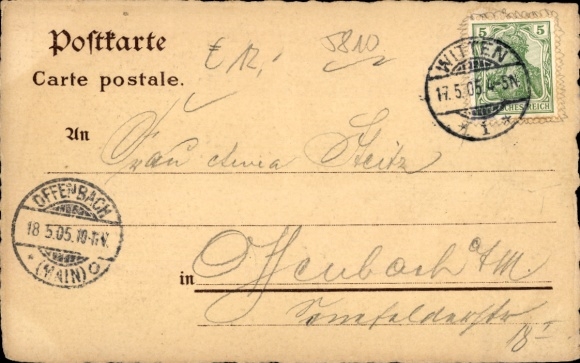 Postkarte
Carte postale.
€ 12,
5810
5 5
DEUTSCHES REICH
WITTEN
17.5.05.4-5N.
* 1 *
An
Frau Steitz
OFFENBACH
18.5.05.10-11V.
* (MAIN) O
in Offenbach a/M.